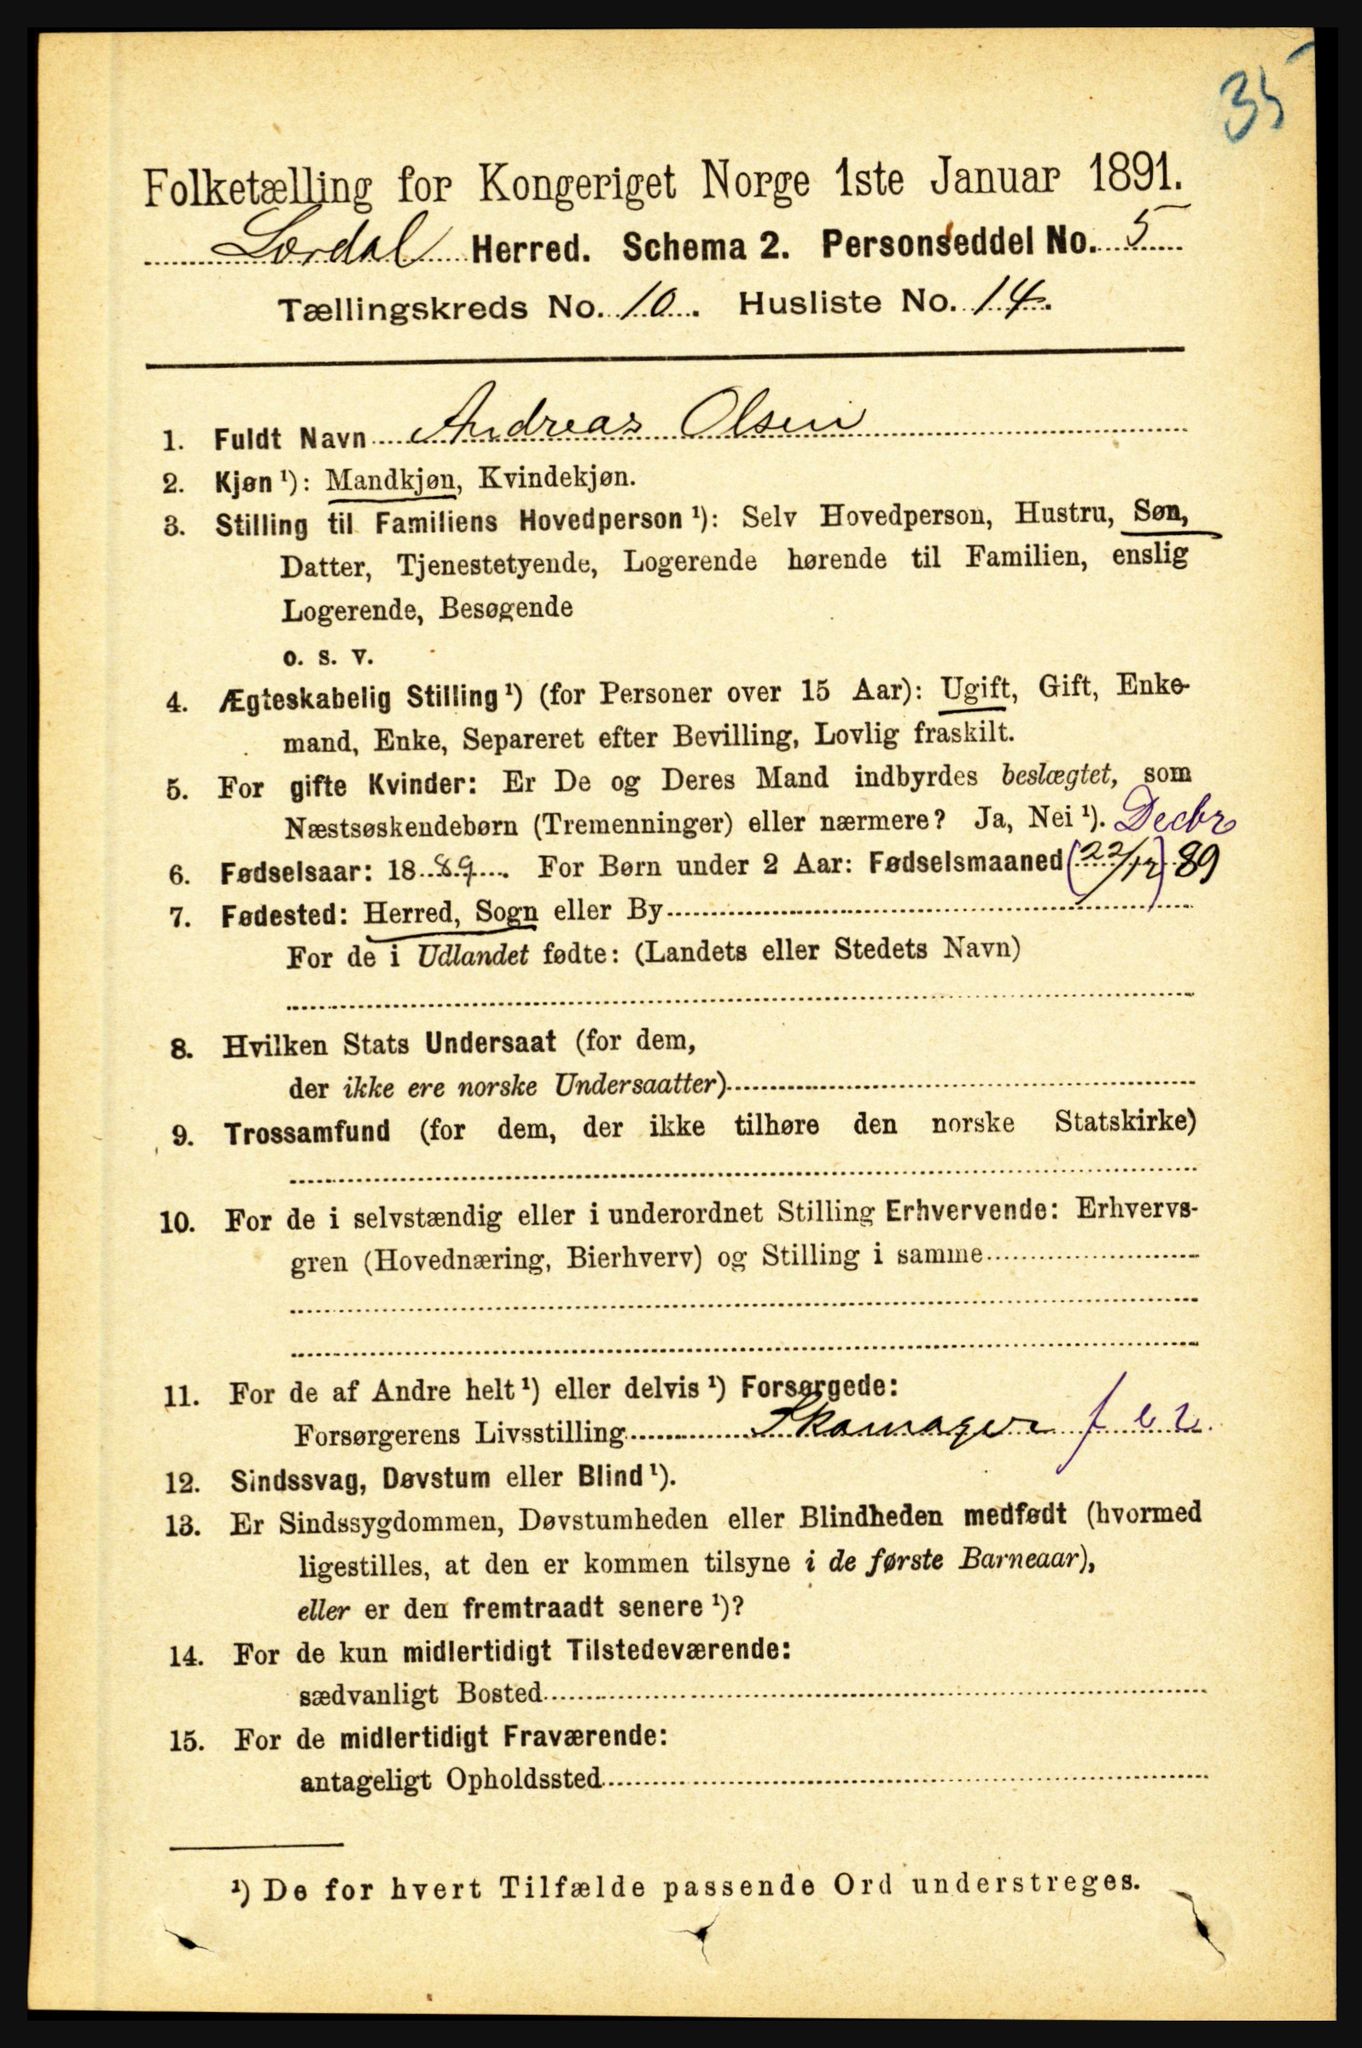 35
Folketælling for Kongeriget Norge 1ste Januar 1891.
Lærdal Herred. Schema 2. Personseddel No. 5
Tællingskreds No. 10. Husliste No. 14.
1. Fuldt Navn Andreas Olsen
2. Kjøn ¹): Mandkjøn, Kvindekjøn.
3. Stilling til Familiens Hovedperson ¹): Selv Hovedperson, Hustru, Søn,
Datter, Tjenestetyende, Logerende hørende til Familien, enslig
Logerende, Besøgende
o. s. v.
4. Ægteskabelig Stilling ¹) (for Personer over 15 Aar): Ugift, Gift, Enke-
mand, Enke, Separeret efter Bevilling, Lovlig fraskilt.
5. For gifte Kvinder: Er De og Deres Mand indbyrdes beslægtet, som
Næstsøskendebørn (Tremenninger) eller nærmere? Ja, Nei ¹). Decbr
6. Fødselsaar: 1889. For Børn under 2 Aar: Fødselsmaaned (22/12) 89
7. Fødested: Herred, Sogn eller By
For de i Udlandet fødte: (Landets eller Stedets Navn)
8. Hvilken Stats Undersaat (for dem,
der ikke ere norske Undersaatter)
9. Trossamfund (for dem, der ikke tilhøre den norske Statskirke)
10. For de i selvstændig eller i underordnet Stilling Erhvervende: Erhvervs-
gren (Hovednæring, Bierhverv) og Stilling i samme
11. For de af Andre helt ¹) eller delvis ¹) Forsørgede:
Forsørgerens Livsstilling Skomager
12. Sindssvag, Døvstum eller Blind ¹).
13. Er Sindssygdommen, Døvstumheden eller Blindheden medfødt (hvormed
ligestilles, at den er kommen tilsyne i de første Barneaar),
eller er den fremtraadt senere ¹)?
14. For de kun midlertidigt Tilstedeværende:
sædvanligt Bosted
15. For de midlertidigt Fraværende:
antageligt Opholdssted
¹) De for hvert Tilfælde passende Ord understreges.